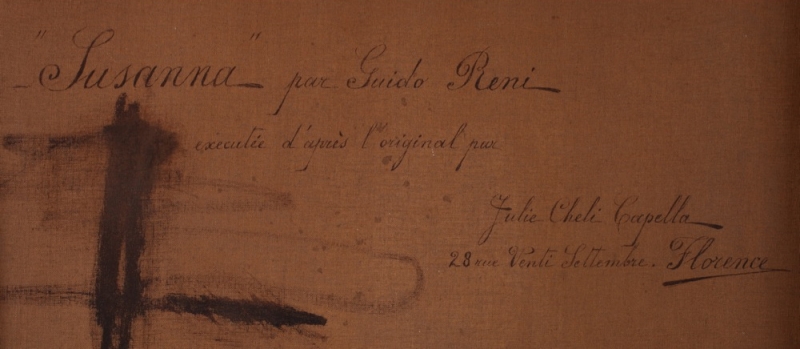 "Susanna" par Guido Reni
executée d'après l'original par
Julie Cheli Capella
28 rue Venti Settembre. Florence